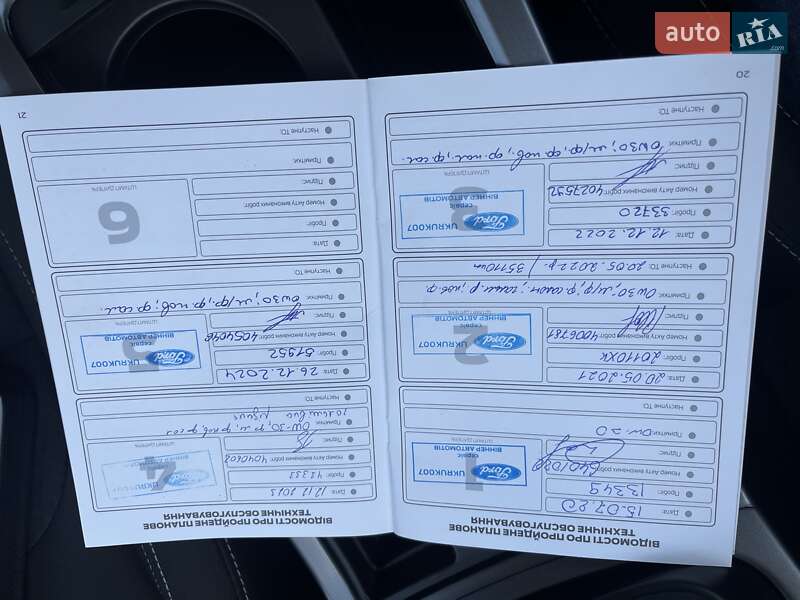 auto RIA.com
20
ВІДОМОСТІ ПРО ПРОЙДЕНЕ ПЛАНОВЕ
ТЕХНІЧНЕ ОБСЛУГОВУВАННЯ
Дата: 15.07.20
Пробіг: 13349
Номер Акту виконаних робіт:
Підпис:
1
ШТАМП ДИЛЕРА
Ford
UKRUK007
ВІННЕР АВТОМОТІВ
Примітки: 0w-20
Наступне ТО:
Дата: 20.05.2021
Пробіг: 20110
Номер Акту виконаних робіт: 4006781
Підпис:
2
ШТАМП ДИЛЕРА
Ford
сервіс
UKRUK007
ВІННЕР АВТОМОТІВ
Примітки: 0w30; м/ф,
Наступне ТО: 20.05.2022р. / 35110км
Дата: 12.12.2022
Пробіг: 33720
Номер Акту виконаних робіт: 4027592
Підпис:
3
ШТАМП ДИЛЕРА
Ford
сервіс
UKRUK007
ВІННЕР АВТОМОТІВ
Примітки: 0W30; м/ф, ф.пов, ф.пал, ф.сал.
Наступне ТО:
21
ВІДОМОСТІ ПРО ПРОЙДЕНЕ ПЛАНОВЕ
ТЕХНІЧНЕ ОБСЛУГОВУВАННЯ
Дата: 12.12.2023
Пробіг: 42333
Номер Акту виконаних робіт:
Підпис:
4
ШТАМП ДИЛЕРА
Ford
UKRUK007
ВІННЕР АВТОМОТІВ
Примітки: 0W-30, ф.м, ф пов, ф сал
Наступне ТО:
Дата: 26.12.2024
Пробіг: 51952
Номер Акту виконаних робіт: 4054048
Підпис:
5
ШТАМП ДИЛЕРА
Ford
сервіс
UKRUK007
ВІННЕР АВТОМОТІВ
Примітки: 0w30; м/ф, ф.пов; ф.сал.
Наступне ТО:
Дата:
Пробіг:
Номер Акту виконаних робіт:
Підпис:
6
ШТАМП ДИЛЕРА
Примітки:
Наступне ТО: